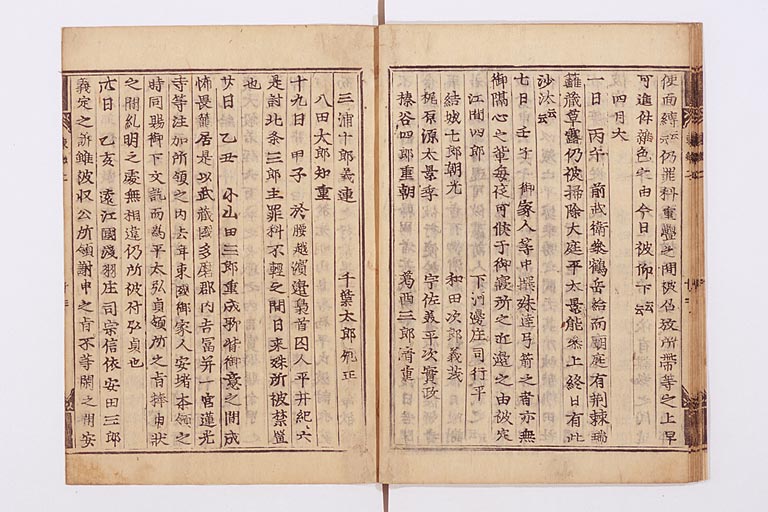 使面縛云云仍罪科重疊之間被召放所帶等之上早
可進件雜色之由今日被仰下云云
四月大
一日 丙午 前武衛參鶴岳給而廟庭有荊棘瑞
籬藏草露仍被掃除大庭平太景能參上終日有此
沙汰云云
七日 壬子 御家人等中撰殊達弓箭之者亦無
御隔心之輩每夜可候于御寢所之近邊之由被定
江間四郎 下河邊庄司行平
結城七郎朝光 和田次郎義茂
梶原源太景季 宇佐美平次實政
榛谷四郎重朝 葛西三郎清重
三浦十郎義連 千葉太郎胤正
八田太郎知重
十九日 甲子 於腰越濱邊梟首囚人平井紀六
是討北条三郎主罪科不輕之間日来殊所被禁置
也
廿日 乙丑 小山田三郎重成聊背御意之間成
怖畏籠居是以武藏國多磨郡内吉富并一宮蓮光
寺等注加所領之内去年東國御家人安堵本領之
時同賜御下文訖而為平太弘貞領所之旨捧申状
之間糺明之處無相違仍所被付弘貞也
卅日 乙亥 遠江國淺羽庄司宗信依安田三郎
義定之訴雖被収公所領謝申之旨不等閑之間安